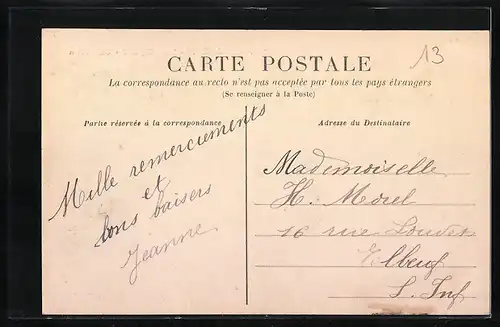 13
CARTE POSTALE
La correspondance au recto n'est pas acceptée par tous les pays étrangers
(Se renseigner à la Poste)
Partie réservée à la correspondance
Adresse du Destinataire
Mille remerciements
et
bons baisers
Jeanne
Mademoiselle
H. Morel
16 rue
Elbeuf
S. Inf